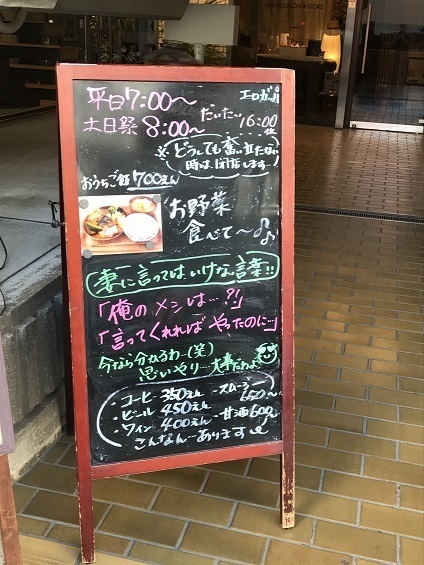 TOTAL SALON & STORE
平日7:00〜
エロガッパ
土日祭 8:00〜 だいたい16:00位
※どうしても奮い立たない
時は閉店します
おうちご飯 700えん
お野菜
食べて〜♪
妻に言ってはいけない言葉!!
「俺のメシは…?!」
「言ってくれればやったのに…」
今なら分かるわ…(笑)
思いやり…大事だわよ
・コーヒー 350えん ・スムージー 650〜
・ビール 450えん
・ワイン 400えん ・甘酒 600
こんなん…あります